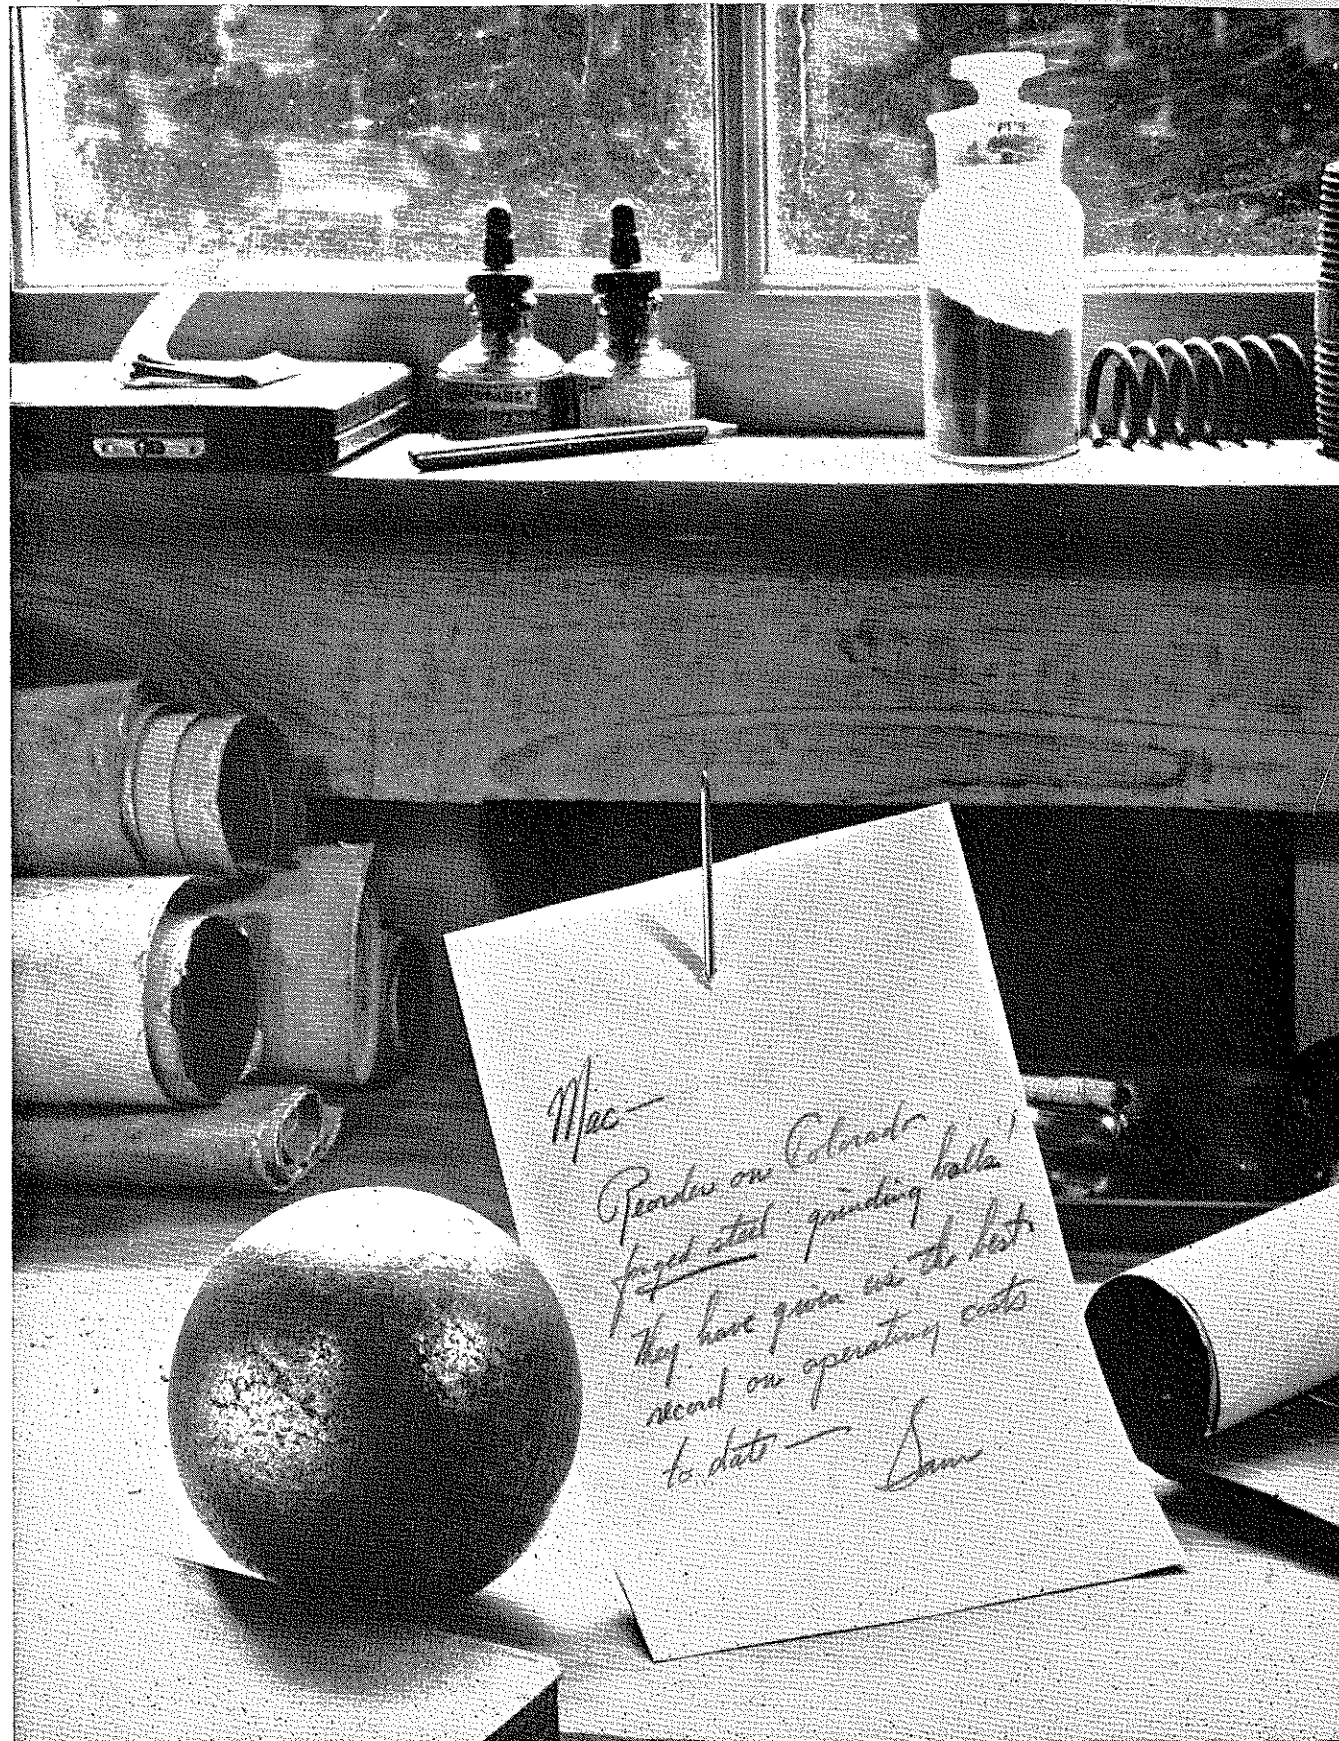 Mac—
Reorder on Colorado
forged steel grinding balls!
They have given us the best
record on operating costs
to date— Sam